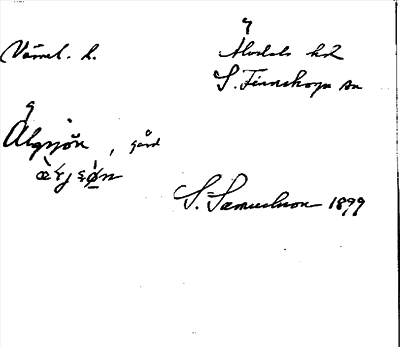 Värml. l.
Älvdals hd
S. Finnskoga sn
Älgsjön, gård
S. Samuelsson 1899